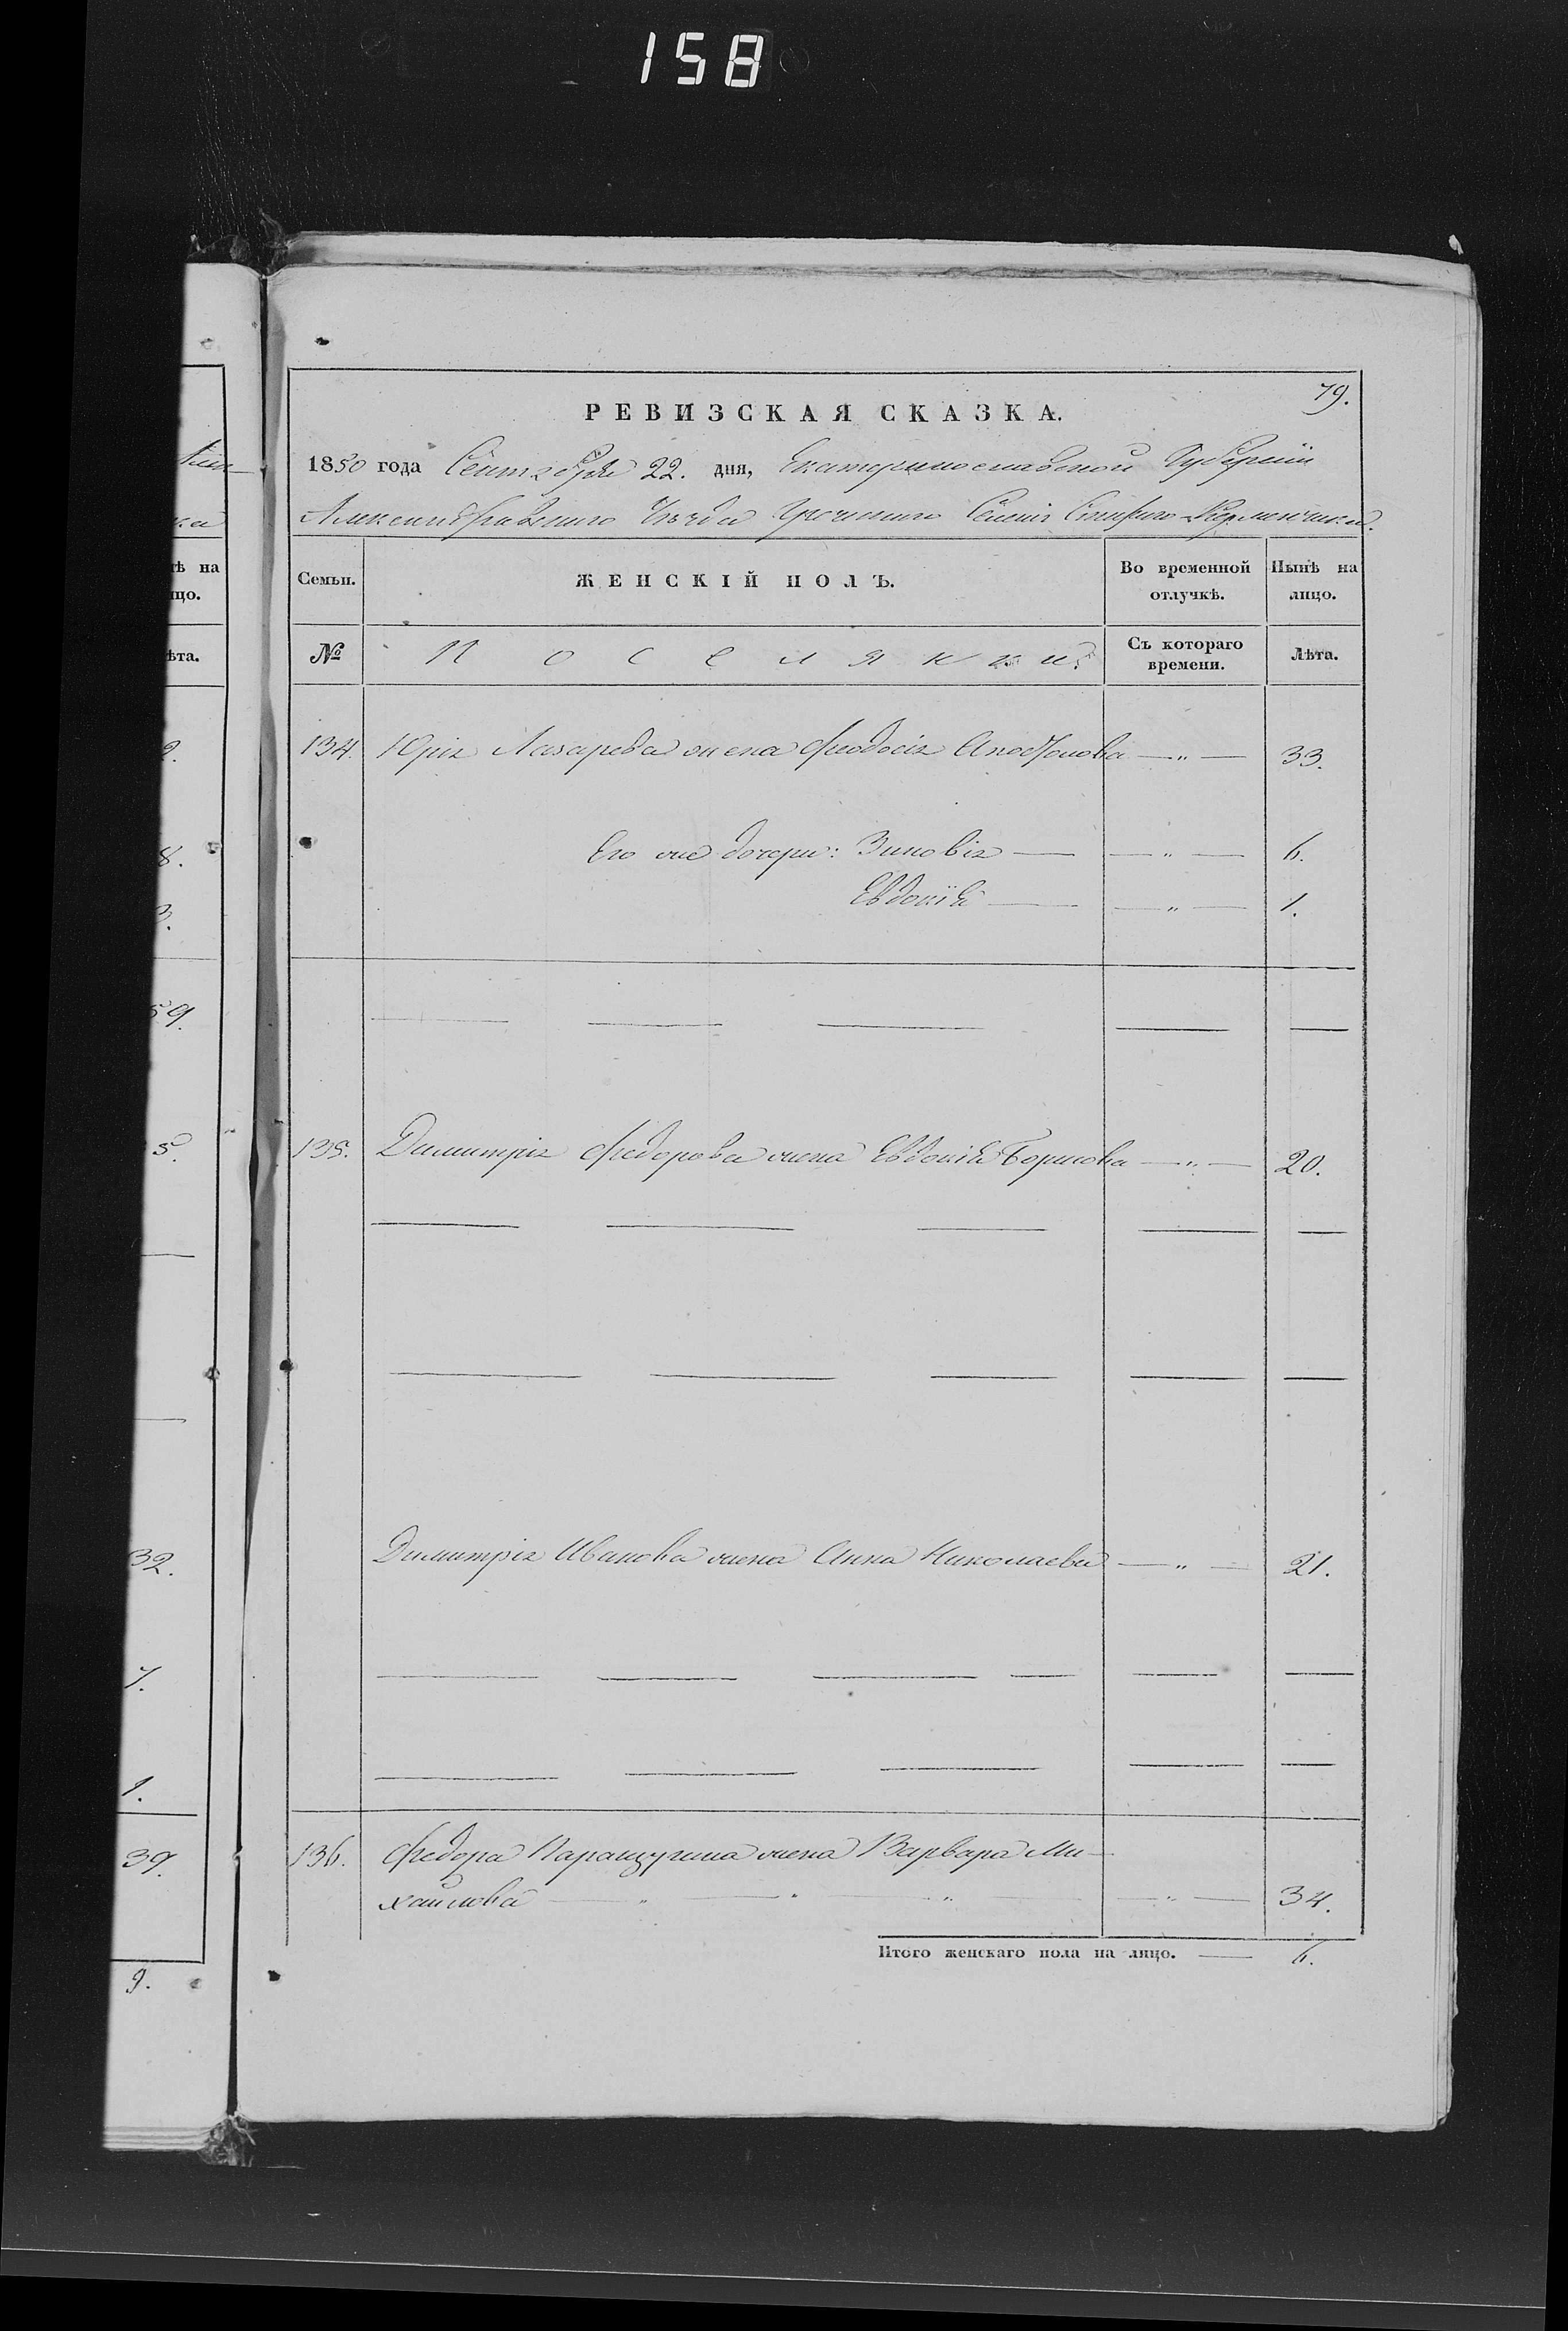 158
79.
РЕВИЗСКАЯ СКАЗКА.
1850 года Сентября 22. дня, Екатеринославской Губерніи
Александровскаго Уѣзда Греческаго Селенія Стараго Керменчика.
Семьи.
ЖЕНСКІЙ ПОЛЪ.
Во временной отлучкѣ.
Нынѣ на лицо.
№
Поселянки:
Съ котораго времени.
Лѣта.
134. Юрія Лазарева жена Феодосія — " — 33.
Его же дочери: Зиновія — — " — 6.
Евдокія — — " — 1.
135. Димитрія Федорова жена Евдокія Борисова — " — 20.
Димитрія Иванова жена Анна Николаева — " — 21.
136. Федора жена Варвара Ми-
хайлова — " — " — " — — " — 34.
Итого женскаго пола на лицо. — 6.
тѣ на
цо.
ѣта.
2.
8.
3.
59.
5.
32.
7.
1.
39.
9.